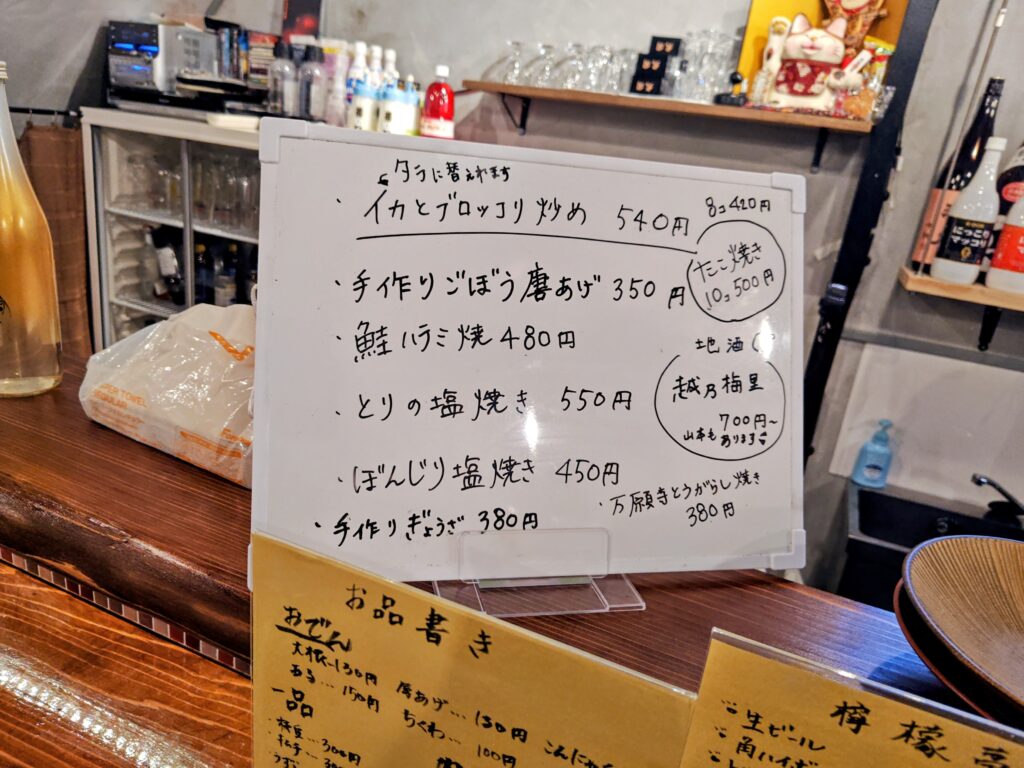 タラに替えれます
・イカとブロッコリ炒め 540円
8コ420円
タコ焼き
10コ500円
・手作りごぼう唐あげ 350円
・鮭ハラミ焼 480円
地酒
越乃梅里
700円~
山本もあります
・とりの塩焼き 550円
・ぼんじり塩焼き 450円
・万願寺とうがらし焼き
380円
・手作りぎょうざ 380円
お品書き
おでん
大根…130円
唐あげ…130円
150円
ちくわ…100円
一品
枝豆…300円
生ビール
角ハイボ
檸檬亭
にっこり
マッコリ